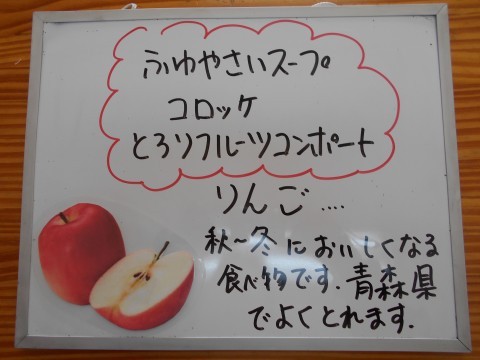 ふゆやさいスープ
コロッケ
とろりフルーツコンポート
りんご....
秋〜冬においしくなる
食べ物です.青森県
でよくとれます.